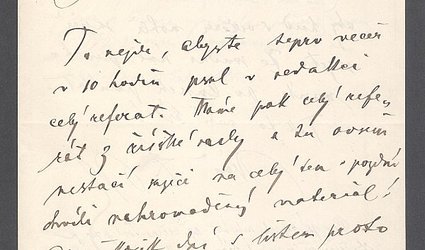 To nejde, abyste teprv večer
v 10 hodin psal v redakci
celý referat. Máme pak celý refe-
rát z říšské rady a tu
nestačí na celý ten pozdní
chvíli nahromaděný materiál!
s listem proto